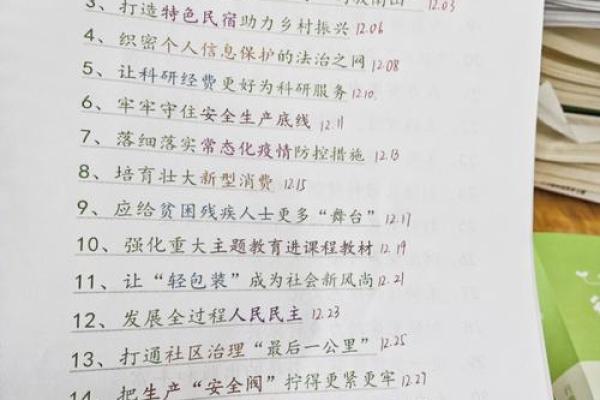 12.03
3、打造特色民宿助力乡村振兴 12.06
4、织密个人信息保护的法治之网 12.08
5、让科研经费更好为科研服务 12.10.
6、牢牢守住安全生产底线 12.11
7、落细落实常态化疫情防控措施 12.13
8、培育壮大新型消费 12.15
9、应给贫困残疾人士更多“舞台” 12.17
10、强化重大主题教育进课程教材 12.19
11、让“轻包装”成为社会新风尚 12.21
12、发展全过程人民民主 12.23
13、打通社区治理“最后一公里” 12.25
14、把生产“安全阀”拧得更紧更牢 12.27